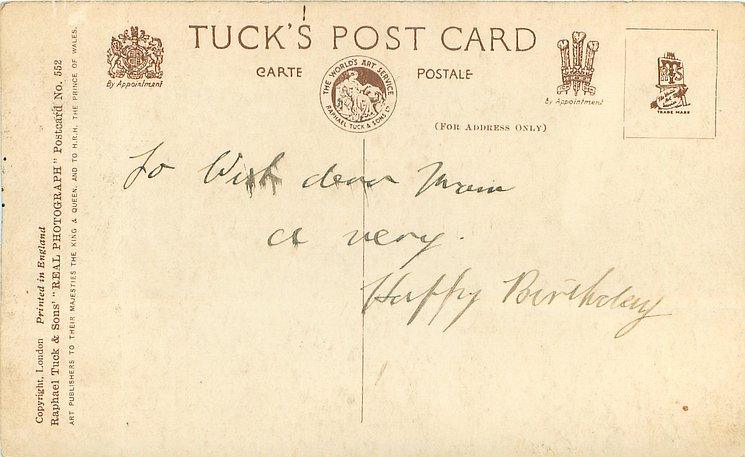 TUCK'S POST CARD
CARTE POSTALE
By Appointment
THE WORLD'S ART SERVICE
RAPHAEL TUCK & SONS LD
By Appointment
TRADE MARK
(FOR ADDRESS ONLY)
To Wish dear Mam
a very.
Happy Birthday
Copyright, London Printed in England
Raphael Tuck & Sons' "REAL PHOTOGRAPH" Postcard No. 552
ART PUBLISHERS TO THEIR MAJESTIES THE KING & QUEEN, AND TO H.R.H. THE PRINCE OF WALES.